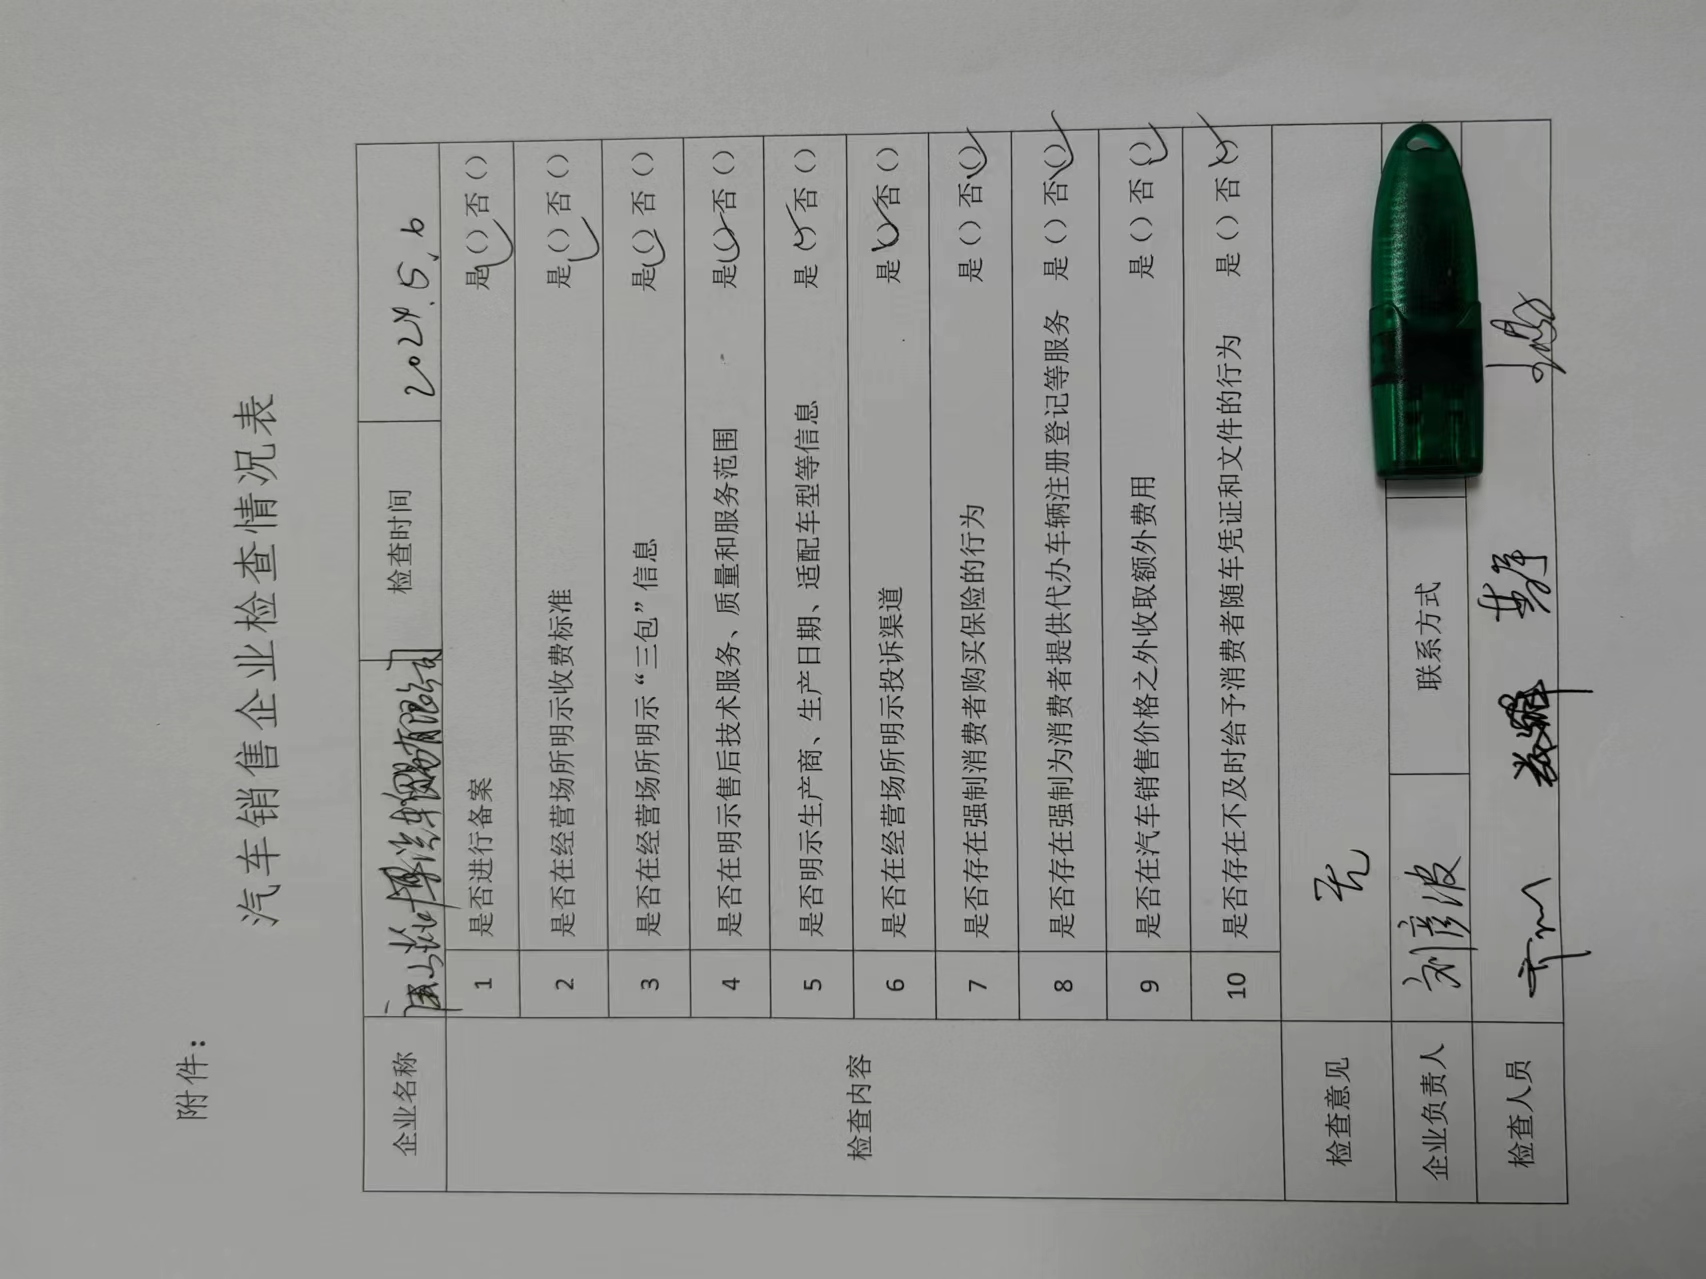 附件：
汽车销售企业检查情况表
企业名称 唐山 汽车销售有限公司 检查时间 2024.5.6
检查内容
1 是否进行备案 是(✓)否()
2 是否在经营场所明示收费标准 是(✓)否()
3 是否在经营场所明示“三包”信息 是(✓)否()
4 是否在明示售后技术服务、质量和服务范围 是(✓)否()
5 是否明示生产商、生产日期、适配车型等信息 是(✓)否()
6 是否在经营场所明示投诉渠道 是(✓)否()
7 是否存在强制消费者购买保险的行为 是()否(✓)
8 是否存在强制为消费者提供代办车辆注册登记等服务 是()否(✓)
9 是否在汽车销售价格之外收取额外费用 是()否(✓)
10 是否存在不及时给予消费者随车凭证和文件的行为 是()否(✓)
检查意见 无
企业负责人 刘彦波 联系方式
检查人员